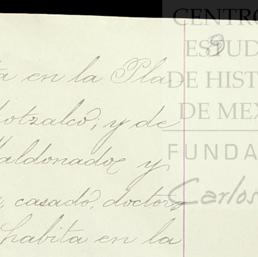 en la Pla
otzalco, y de
Maldonado y
, casado, doctor
habita en la
9
CENTRO
ESTUD
DE HIST
DE MEX
FUNDA
Carlos